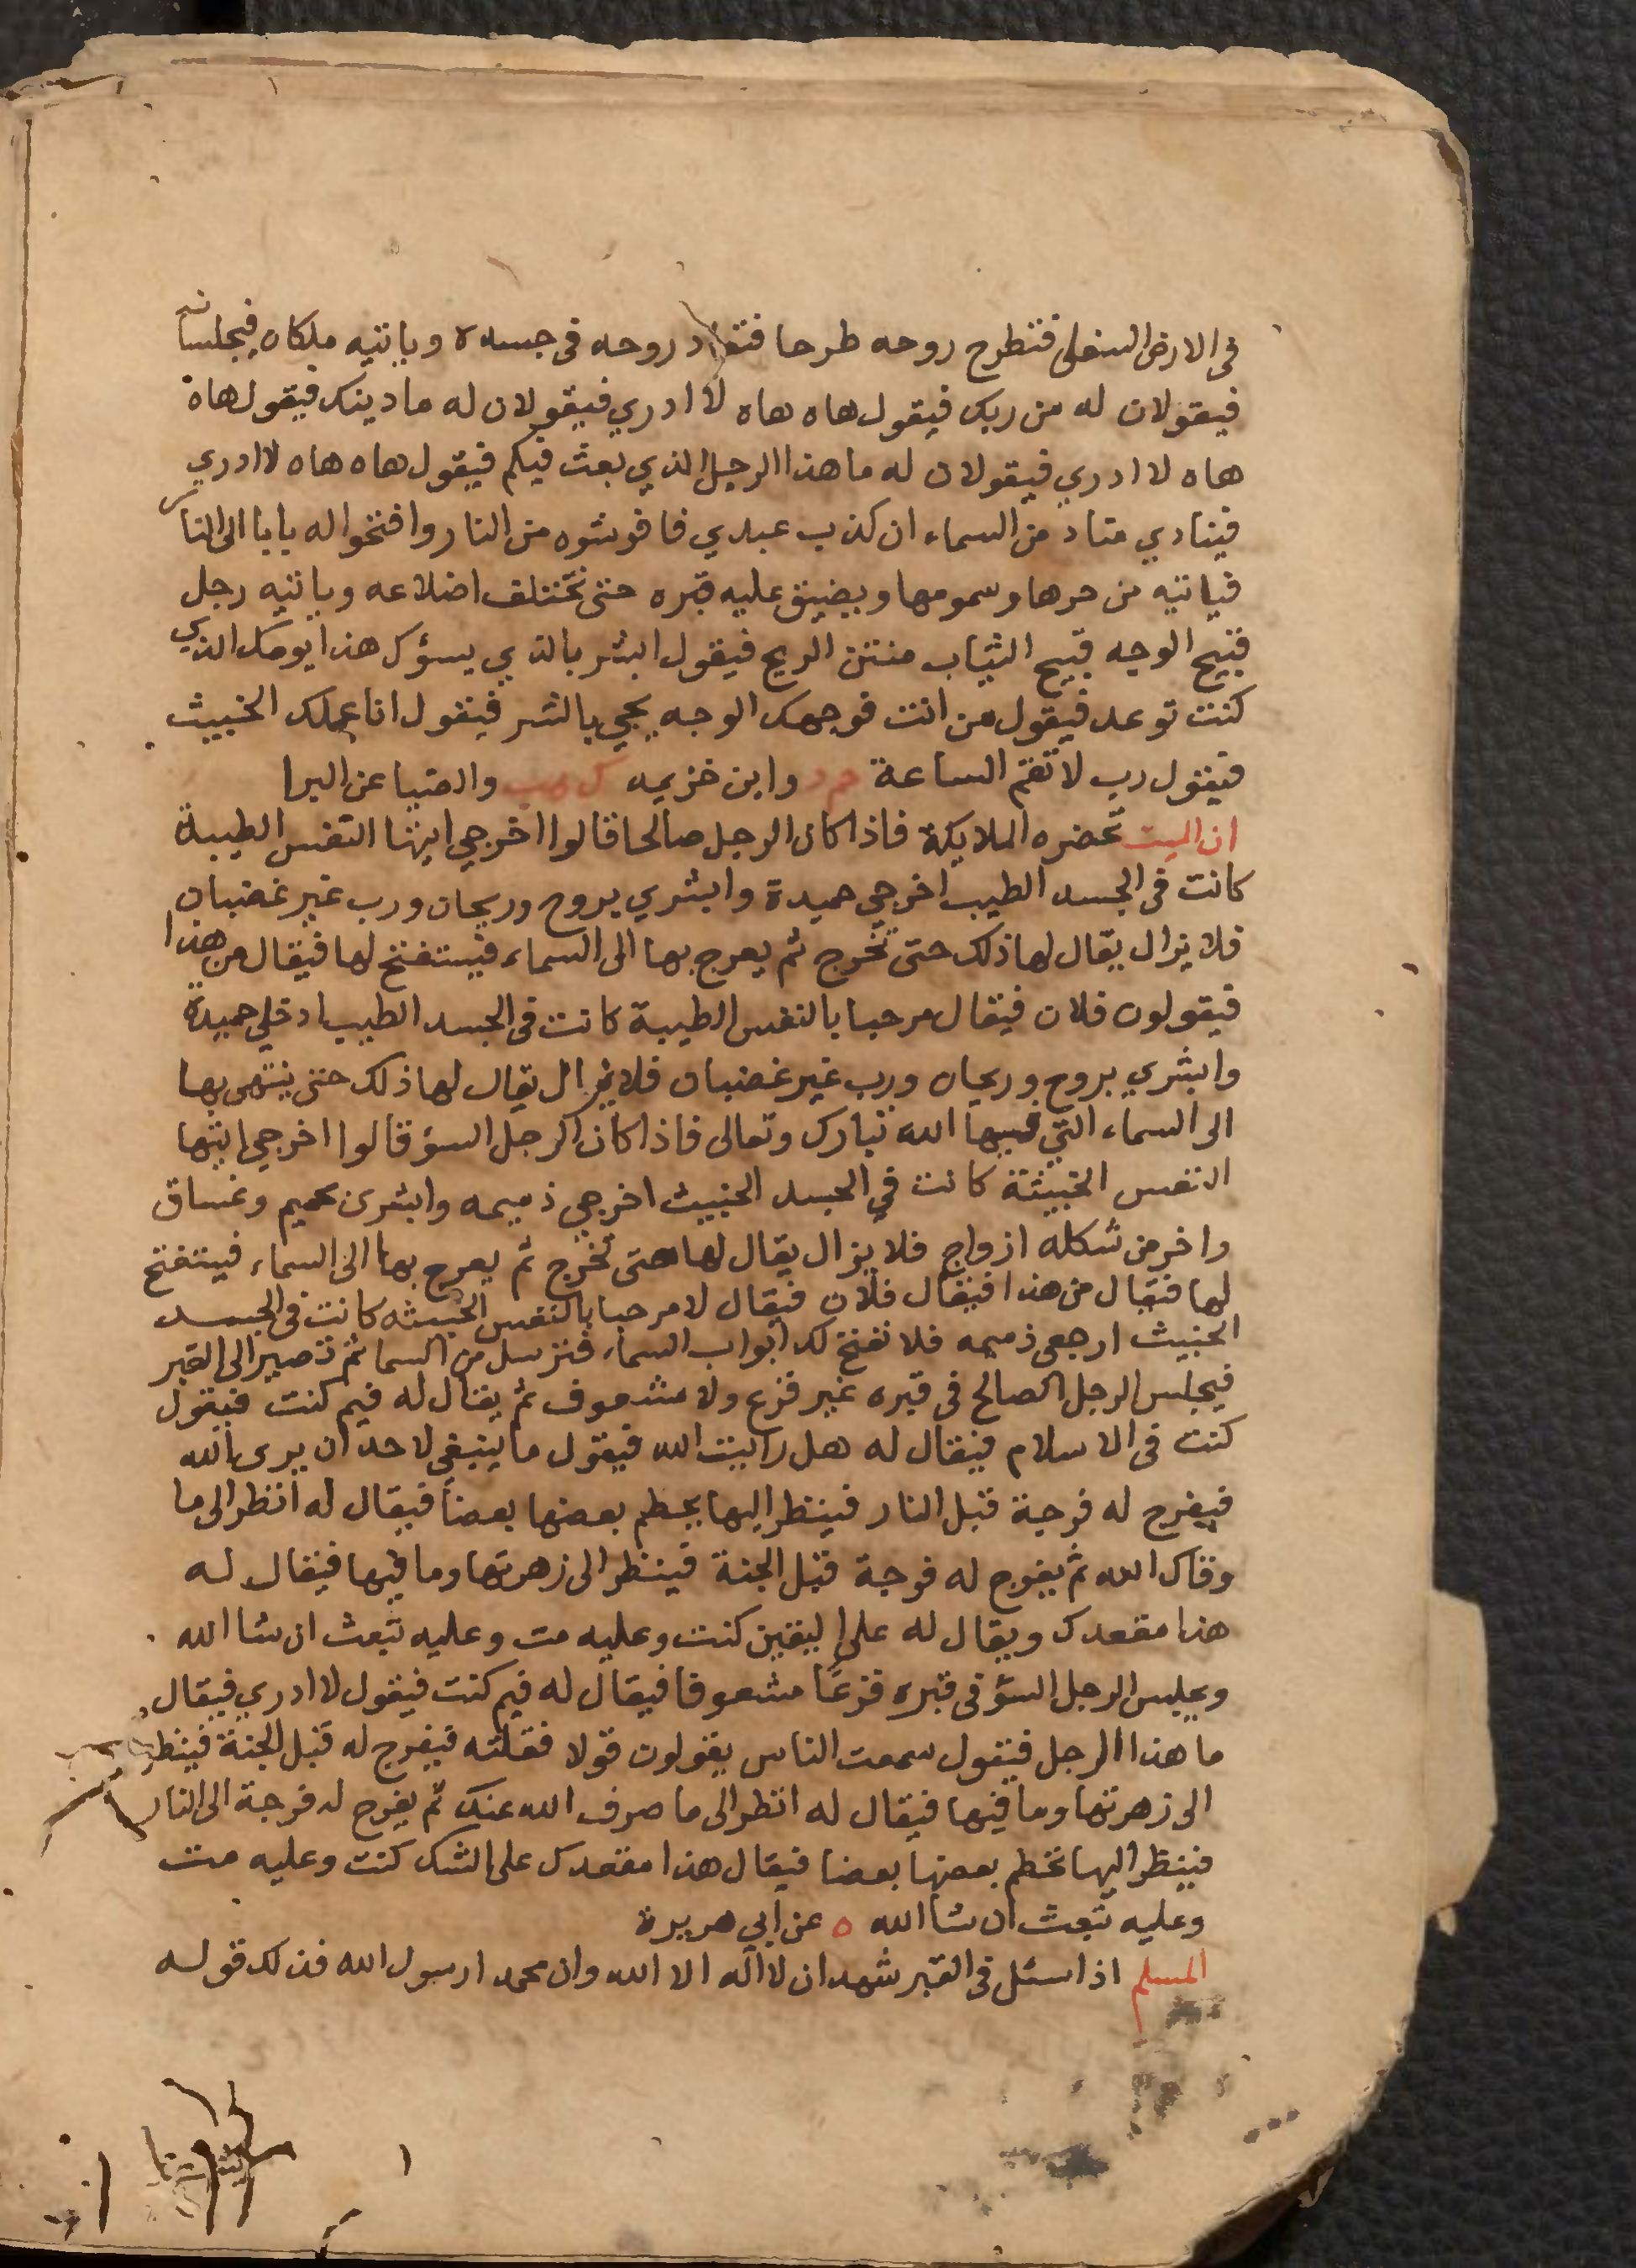 في الارض السفلى فتطرح روحه طرحا فتعاد روحه في جسده وياتيه ملكان فيجلسانه
فيقولان له من ربك فيقول هاه هاه لا ادري فيقولان له ما دينك فيقول هاه
هاه لا ادري فيقولان له ما هذا الرجل الذي بعث فيكم فيقول هاه هاه لا ادري
فينادي مناد من السماء ان كذب عبدي فافرشوه من النار وافتحوا له بابا الى النار
فياتيه من حرها وسمومها ويضيق عليه قبره حتى تختلف اضلاعه وياتيه رجل
قبيح الوجه قبيح الثياب منتن الريح فيقول ابشر بالذي يسؤك هذا يومك الذي
كنت توعد فيقول من انت فوجهك الوجه يجي بالشر فيقول انا عملك الخبيث
فيقول رب لا تقم الساعة حم د وابن خزيمه ك هب والضيا عن البرا
ان الميت تحضره الملايكة فاذا كان الرجل صالحا قالوا اخرجي ايتها النفس الطيبة
كانت في الجسد الطيب اخرجي حميدة وابشري بروح وريحان ورب غير غضبان
فلا يزال يقال لها ذلك حتى تخرج ثم يعرج بها الى السماء فيستفتح لها فيقال من هذا
فيقولون فلان فيقال مرحبا بالنفس الطيبة كانت في الجسد الطيب ادخلي حميدة
وابشري بروح وريحان ورب غير غضبان فلا يزال يقال لها ذلك حتى ينتهى بها
الى السماء التي فيها الله تبارك وتعالى فاذا كان الرجل السؤ قالوا اخرجي ايتها
النفس الخبيثة كانت في الجسد الخبيث اخرجي ذميمه وابشرى بحميم وغساق
واخر من شكله ازواج فلا يزال يقال لها حتى تخرج ثم يعرج بها الى السماء فيستفتح
لها فيقال من هذا فيقال فلان فيقال لا مرحبا بالنفس الخبيثه كانت في الجسد
الخبيث ارجعي ذميمه فلا تفتح لك ابواب السماء فترسل من السما ثم تصير الى القبر
فيجلس الرجل الصالح في قبره غير فزع ولا مشعوف ثم يقال له فيم كنت فيقول
كنت في الاسلام فيقال له هل رايت الله فيقول ما ينبغي لاحد ان يرى الله
فيفرج له فرجة قبل النار فينظر اليها يحطم بعضها بعضا فيقال له انظر الى ما
وقاك الله ثم يفرج له فرجة قبل الجنة فينظر الى زهرتها وما فيها فيقال له
هذا مقعدك ويقال له على اليقين كنت وعليه مت وعليه تبعث ان شا الله
ويجلس الرجل السؤ في قبره فزعا مشعوفا فيقال له فيم كنت فيقول لا ادري فيقال
ما هذا الرجل فيقول سمعت الناس يقولون قولا فقلته فيفرج له قبل الجنة فينظر
الى زهرتها وما فيها فيقال له انظر الى ما صرف الله عنك ثم يفرج له فرجة الى النار
فينظر اليها تحطم بعضها بعضا فيقال هذا مقعدك على الشك كنت وعليه مت
وعليه تبعث ان شا الله ه عن ابي هريرة
المسلم اذا سئل في القبر شهد ان لا اله الا الله وان محمدا رسول الله فذلك قوله